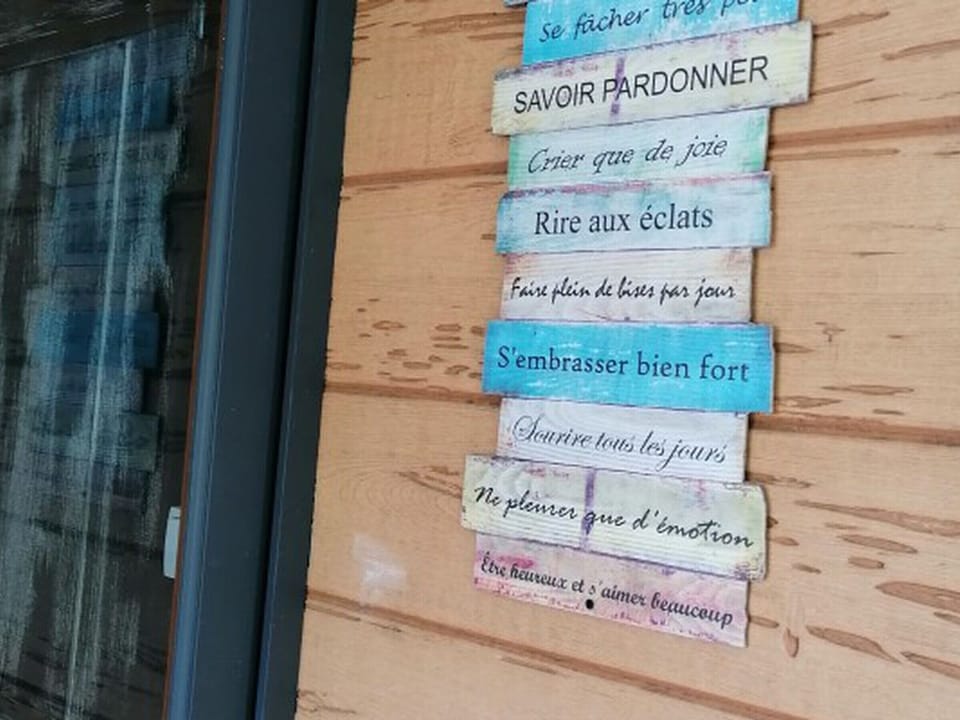 Se fâcher très
SAVOIR PARDONNER
Crier que de joie
Rire aux éclats
Faire plein de bises par jour
S'embrasser bien fort
Sourire tous les jours
Ne pleurer que d'émotion
Être heureux et s'aimer beaucoup